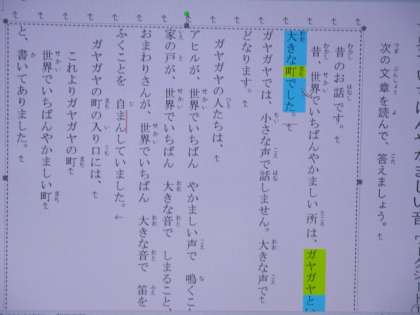 次の文章を読んで、答えましょう。
昔のお話です。
昔、世界でいちばんやかましい所は、ガヤガヤとい
大きな町でした。
ガヤガヤでは、小さな声で話しません。大きな声で
どなります。
ガヤガヤの人たちは、
アヒルが、世界でいちばん　やかましい声で　鳴くこ
家の戸が、世界でいちばん　大きな音で　しまること、
おまわりさんが、世界でいちばん　大きな音で　笛を
ふくことを　自まんしていました。
ガヤガヤの町の入り口には、
これよりガヤガヤの町
世界でいちばんやかましい町
と、書いてありました。